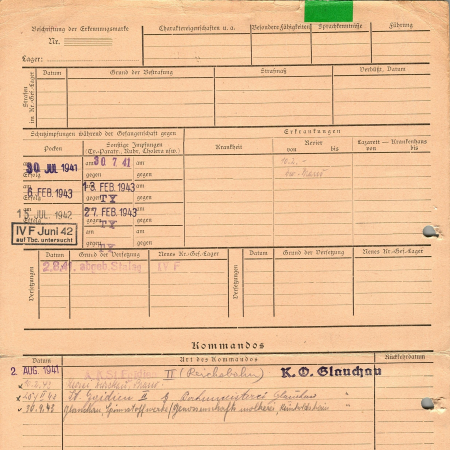 Beschriftung der Erkennungsmarke
Nr.
Lager:
Charaktereigenschaften u. a.
Besondere Fähigkeiten
Sprachkenntnisse
Führung
Strafen im Kr.-Gef.-Lager
Datum
Grund der Bestrafung
Strafmaß
Verbüßt, Datum
Schutzimpfungen während der Gefangenschaft gegen
Erkrankungen
Pocken
Sonstige Impfungen
(Ty.-Paratyph., Ruhr, Cholera usw.)
Krankheit
Revier
von bis
Lazarett — Krankenhaus
von bis
30 JUL 1941
am 30 7 41
am
Erfolg
gegen
gegen
6 FEB. 1943
13 FEB. 1943
am
Erfolg
gegen TY
gegen
15 JUL. 1942
27 FEB. 1943
am
gegen TY
gegen
IV F Juni 42
auf Tbc. untersucht
am
am
gegen TY
gegen
Versetzungen
Datum
Grund der Versetzung
Neues Kr.-Gef.-Lager
Versetzungen
Datum
Grund der Versetzung
Neues Kr.-Gef.-Lager
2.8.41. abgeb. Stalag IV F
Kommandos
Datum
Art des Kommandos
Rückkehrdatum
2. AUG. 1941
II (Reichsbahn)
K.O. Glauchau
St. Egidien II
Glauchau
Glauchau, Spinnstoffwerke/